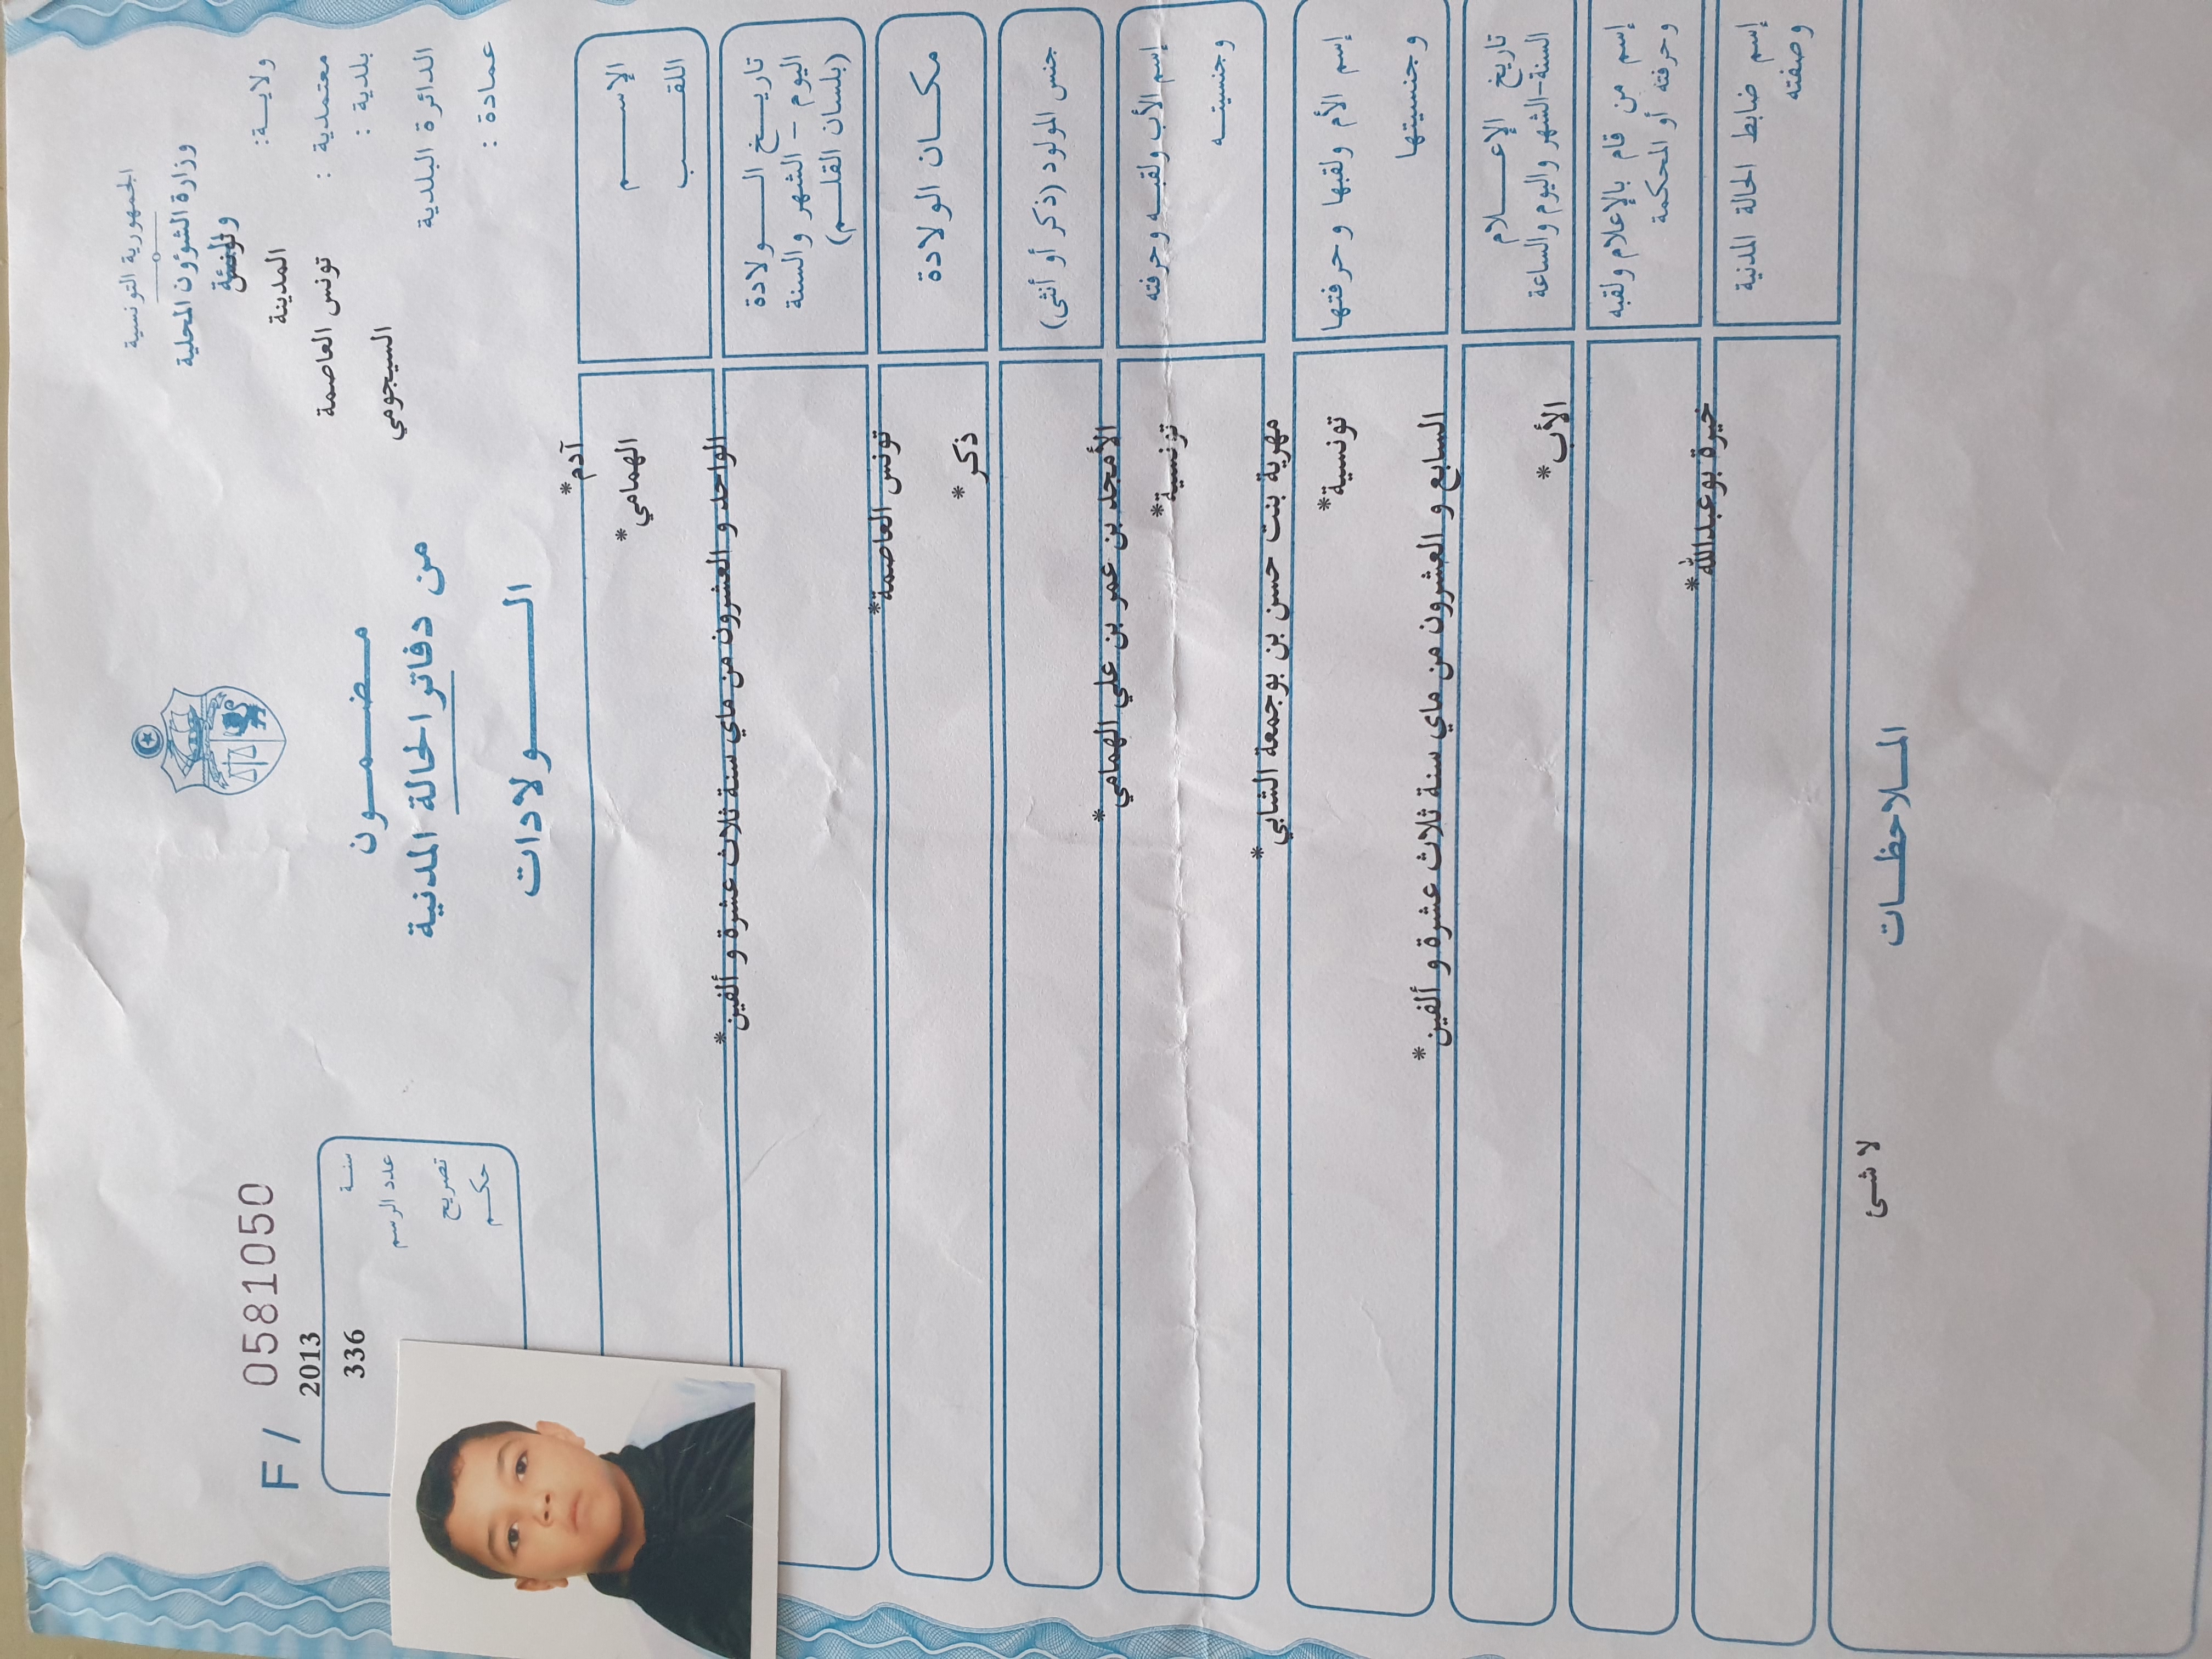 الجمهورية التونسية
وزارة الشؤون المحلية
والبيئة
ولايـــة: المدينة تونس
معتمدية : تونس العاصمة
بلدية : السيجومي
الدائرة البلدية
عمادة :
مـضـمـــون
من دفاتر الحالة المدنية
الـــــولادات
F / 0581050
سنـــة 2013
عدد الرسم 336
تصريح
حكـــم
الإســـــم آدم*
اللقــــب الهمامي*
تاريـــخ الـــــولادة
اليوم - الشهر والسنة
(بلسان القلـــم)
الواحد و العشرون من ماي سنة ثلاث عشرة و ألفين*
مكـــان الولادة تونس العاصمة*
جنس المولود (ذكر أو أنثى) ذكر*
إسم الأب ولقبـــه وحرفته الأمجد بن عمر بن علي الهمامي*
وجنسيتـــه تونسية*
إسم الأم ولقبها وحرفتها مهرية بنت حسن بن بوجمعة الشابي*
وجنسيتها تونسية*
تاريخ الإعـــــلام
السنة-الشهر واليوم والساعة
السابع و العشرون من ماي سنة ثلاث عشرة و ألفين*
إسم من قام بالإعلام ولقبه
وحرفته أو المحكمة
الأب*
إسم ضابط الحالة المدنية
وصفته
خيرة بوعبدالله*
المـــلاحظـــات
لا شئ